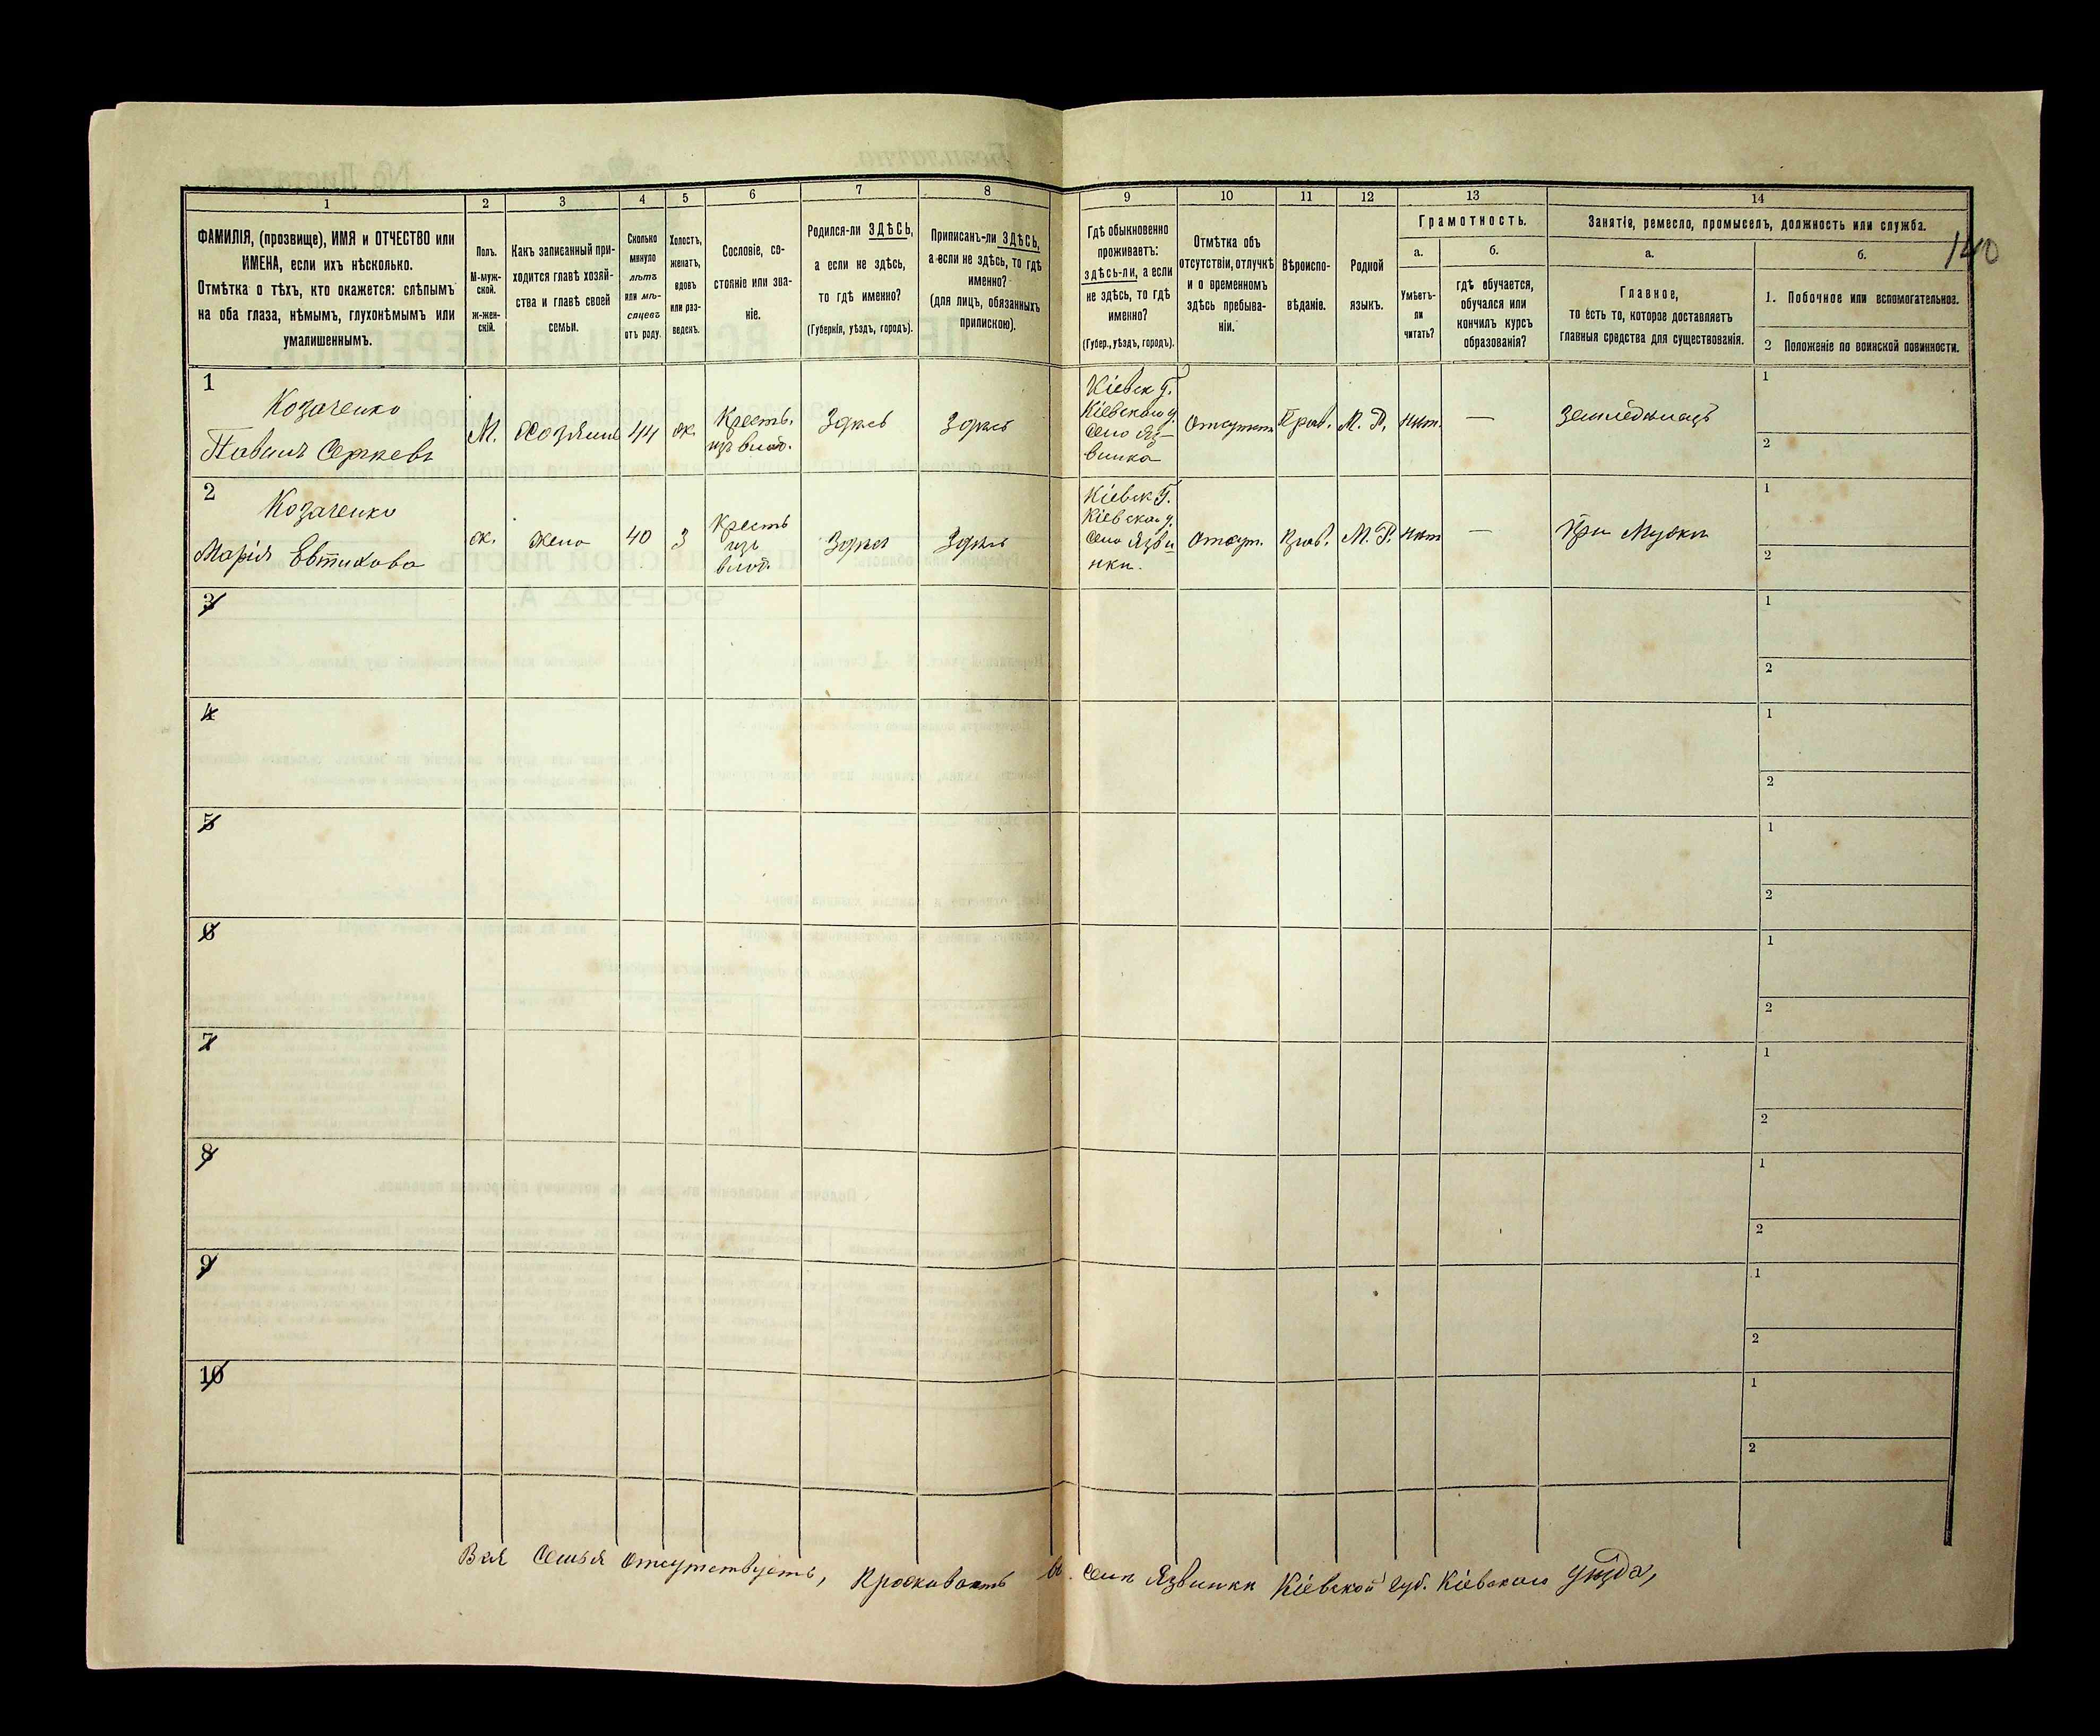 140
1
2
3
4
5
6
7
8
9
10
11
12
13
14
ФАМИЛІЯ, (прозвище), ИМЯ и ОТЧЕСТВО или
ИМЕНА, если ихъ нѣсколько.
Отмѣтка о тѣхъ, кто окажется: слѣпымъ
на оба глаза, нѣмымъ, глухонѣмымъ или
умалишеннымъ.
Полъ.
М-муж-
ской.
ж-жен-
скій.
Какъ записанный при-
ходится главѣ хозяй-
ства и главѣ своей
семьи.
Сколько
минуло
лѣтъ
или мѣ-
сяцевъ
отъ роду.
Холостъ,
женатъ,
вдовъ
или раз-
веденъ.
Сословіе, со-
стояніе или зва-
ніе.
Родился-ли ЗДѢСЬ,
а если не здѣсь,
то гдѣ именно?
(Губернія, уѣздъ, городъ).
Приписанъ-ли ЗДѢСЬ,
а если не здѣсь, то гдѣ
именно?
(для лицъ, обязанныхъ
припискою).
Гдѣ обыкновенно
проживаетъ:
здѣсь-ли, а если
не здѣсь, то гдѣ
именно?
(Губер., уѣздъ, городъ).
Отмѣтка объ
отсутствіи, отлучкѣ
и о временномъ
здѣсь пребыва-
ніи.
Вѣроиспо-
вѣданіе.
Родной
языкъ.
Грамотность.
а.
Умѣетъ-
ли
читать?
б.
гдѣ обучается,
обучался или
кончилъ курсъ
образованія?
Занятіе, ремесло, промыселъ, должность или служба.
а.
Главное,
то есть то, которое доставляетъ
главныя средства для существованія.
б.
1. Побочное или вспомогательное.
2 Положеніе по воинской повинности.
1
Козаченко
Павелъ Сергѣевъ
М.
Хозяинъ
44
ж.
Кресть.
изъ влад.
Здѣсь
Здѣсь
Кіевск г.
Кіевскаго у.
село Яз-
винка
Отсутств
Прав.
М. Р.
нѣт.
—
Земледѣлецъ
1
2
2
Козаченко
Марія Евтихова
ж.
жена
40
З
Кресть
изъ
влад.
Здѣсь
Здѣсь
Кіевск г.
Кіевскаго у.
село Язви
нки.
Отсут.
Прав.
М. Р.
нѣт
—
При Мужѣ
1
2
3
1
2
4
1
2
5
1
2
6
1
2
7
1
2
8
1
2
9
1
2
10
1
2
Вся Семья Отсутствуетъ, Проживаетъ въ селѣ Язвинки Кіевской губ. Кіевскаго уѣзда,